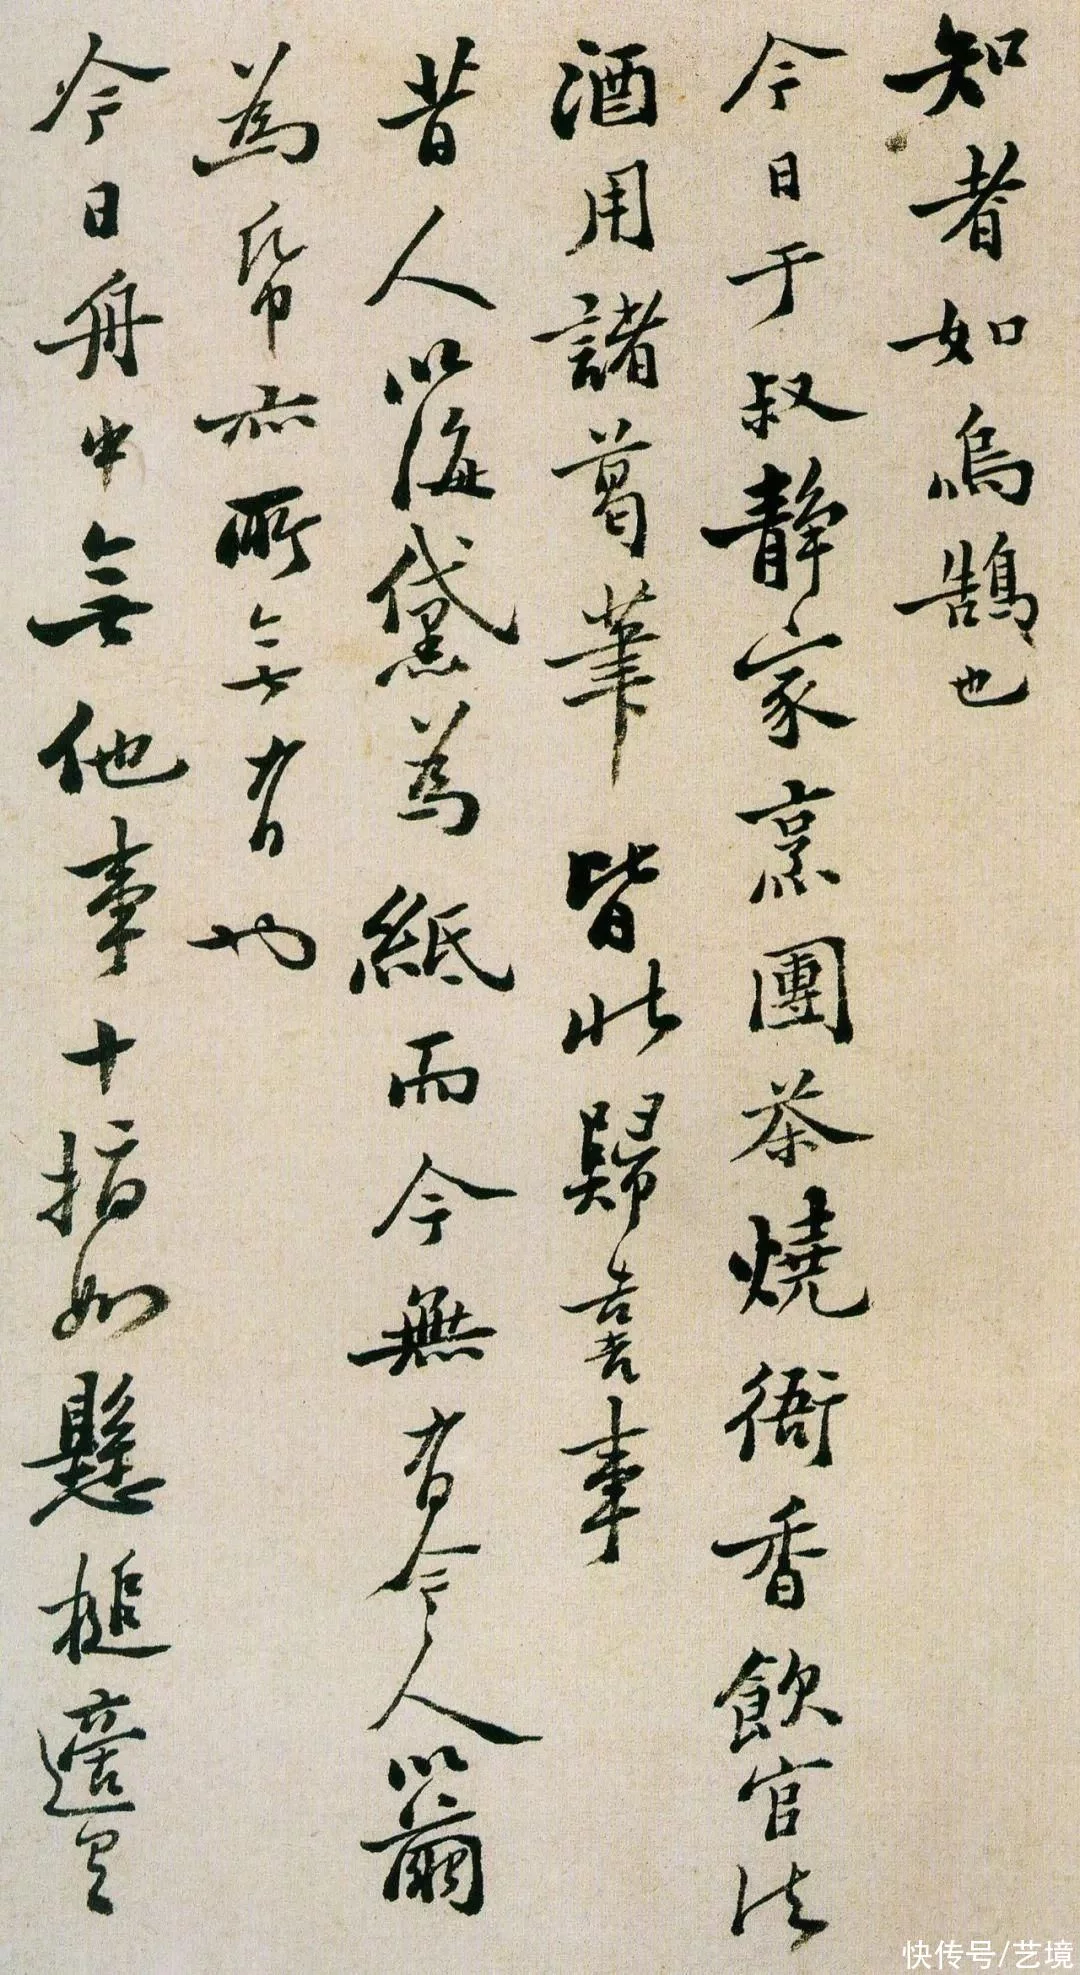 知者如烏鵲也
今日于叔静家烹團茶燒衙香飲官法
酒用諸葛筆皆此歸喜事
昔人以海黛為紙而今無有今人以繭
為帋亦所無有也
今日舟中無他事十指如懸槌適
快传号/艺境